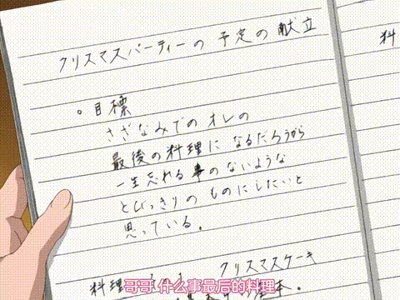 クリスマスパーティーの予定の献立
○目標
さざなみでのオレの
最後の料理になるだろうから
一生忘れる事のないような
とびっきりのものにしたいと
思っている。
クリスマスケーキ
料理
哥哥 什么事最后的料理
料